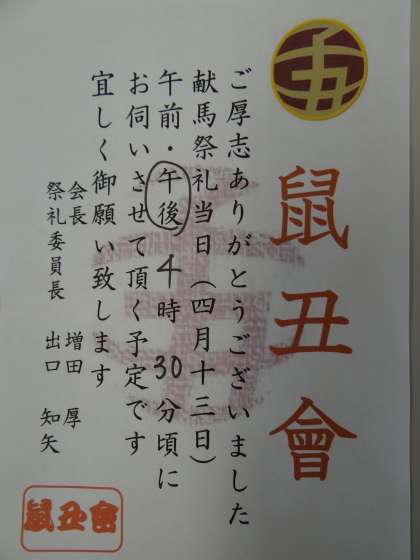 鼠丑會
ご厚志ありがとうございました
献馬祭礼当日(四月十三日)
午前・午後 4時 30分頃に
お伺いさせて頂く予定です
宜しく御願い致します
会長 増田 厚
祭礼委員長 出口 知矢
鼠丑會